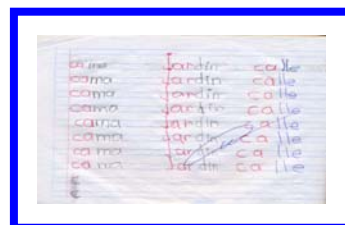 cama Jardin calle
cama Jardin calle
cama Jardin calle
cama Jardin calle
cama Jardin calle
cama Jardin calle
cama Jardin calle
cama Jardin calle